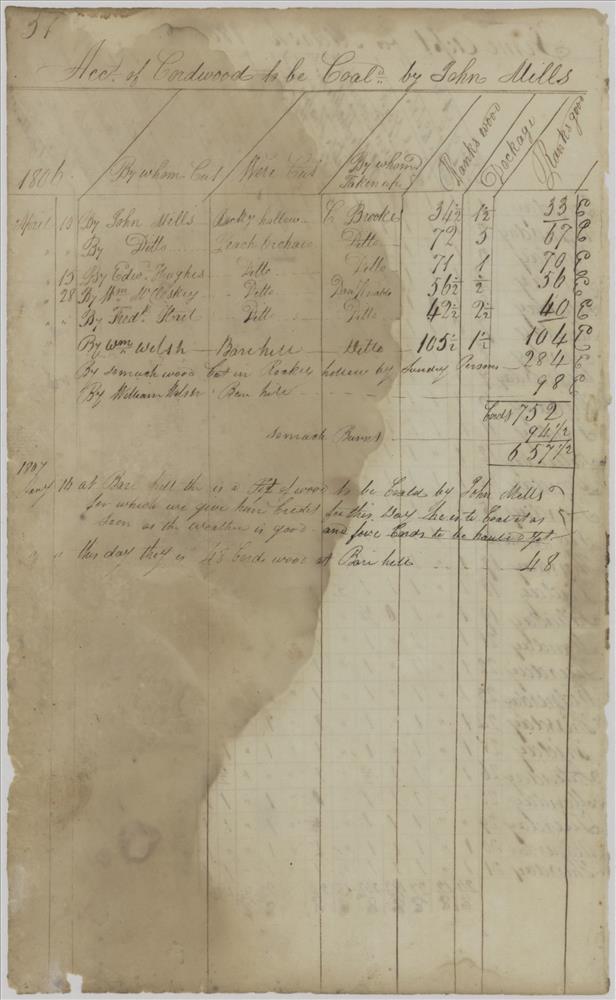 57
Acct. of Cordwood to be Coald. by John Mills
1806. By whom Cut Were Cut By whom Taken up Ranks wood Dockage Ranks good
April 15 By John Mills Rocky hollow C Brooke 34½ 1½ 33
" " By Ditto Peach Orchard Ditto 72 5 67
" 15 By Edwd. Hughes Ditto Ditto 71 1 70
" 28 By Wm. McCloskey Ditto 56½ ½ 56
" " By Fredk. Ditto Ditto 42½ 2½ 40
By Wm Welsh Bare hill Ditto 105½ 1½ 104
By somuch wood Cut in Rockey hollow by Sundry Persons 284
By William Welsh Bare hill 98
Cords 752
somuch Burnt 94½
657½
1807
Jany 14 at Bare hill the is a of wood to be Coald by John Mills
for which we give him Credit for this Day he is to Coal it as
soon as the weather is good and four Cords to be hauled yet
" " this day they is 48 Cords wood at Bare hill 48